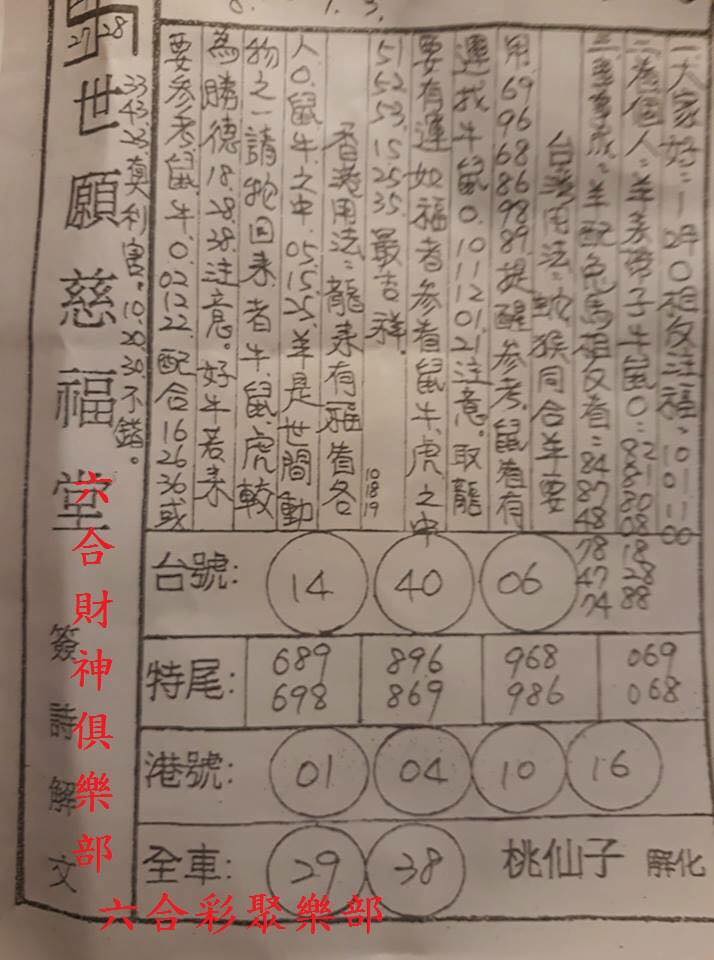 27 28
世願慈福堂
簽詩解文
一大家好=1 2牛0相反注福=10 01 11 00
二為個人=羊來帶子牛鼠0=82 81 80 08 18 28 88
羊配兔馬相反者=84 87 48 78 47 74
台灣用法=蛇猴同合羊要
用.69 96 68 86 98 89.提醒參考.鼠豬有
運找牛鼠0.10 11 12 01.21.注意。取龍
要有運如福者參看鼠牛.虎之中
51 52 53.15.25.35.最吉祥.
香港用法=龍來有福偕各
10 18 19
人0.鼠牛之中.05.15.25.羊是世間動
物之一請蛇回來者牛.鼠.虎較
為勝德18.28.38.注意。好牛若來
要參考鼠.牛.0.02 12 22.配合16 26 36或
33.43.23.真利害。10.20.30.不錯。
台號: 14 40 06
特尾: 689 698 896 869 968 986 069 068
港號: 01 04 10 16
全車: 29 38 桃仙子 解化
六合財神俱樂部
六合彩聚樂部